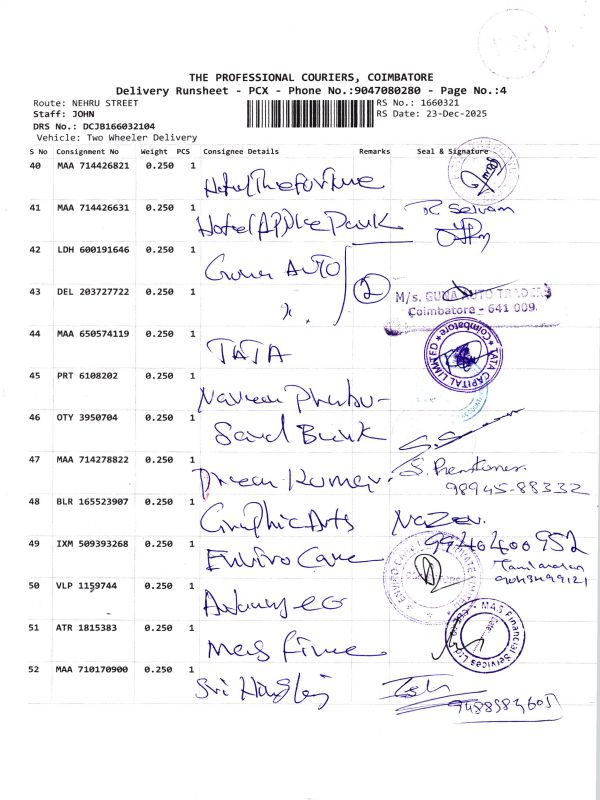 THE PROFESSIONAL COURIERS, COIMBATORE
Delivery Runsheet - PCX - Phone No.:9047080280 - Page No.:4
Route: NEHRU STREET RS No.: 1660321
Staff: JOHN RS Date: 23-Dec-2025
DRS No.: DCJB166032104
Vehicle: Two Wheeler Delivery
S No Consignment No Weight PCS Consignee Details Remarks Seal & Signature
40 MAA 714426821 0.250 1
41 MAA 714426631 0.250 1 Hotel Apple Park R Selvam
42 LDH 600191646 0.250 1 Guna AUTO
43 DEL 203727722 0.250 1 2 M/s. GUNA AUTO TRADERS
Coimbatore - 641 009.
44 MAA 650574119 0.250 1 TATA TATA CAPITAL LIMITED * Coimbatore *
45 PRT 6108202 0.250 1 Naveen
46 OTY 3950704 0.250 1 Bunk
47 MAA 714278822 0.250 1 Kumar
98945-88332
48 BLR 165523907 0.250 1 Graphic Arts Nazer
49 IXM 509393268 0.250 1 Enviro Care 9940400952
50 VLP 1159744 0.250 1
51 ATR 1815383 0.250 1 Mas Fine MAS Financial Services Ltd
52 MAA 710170900 0.250 1 Sri